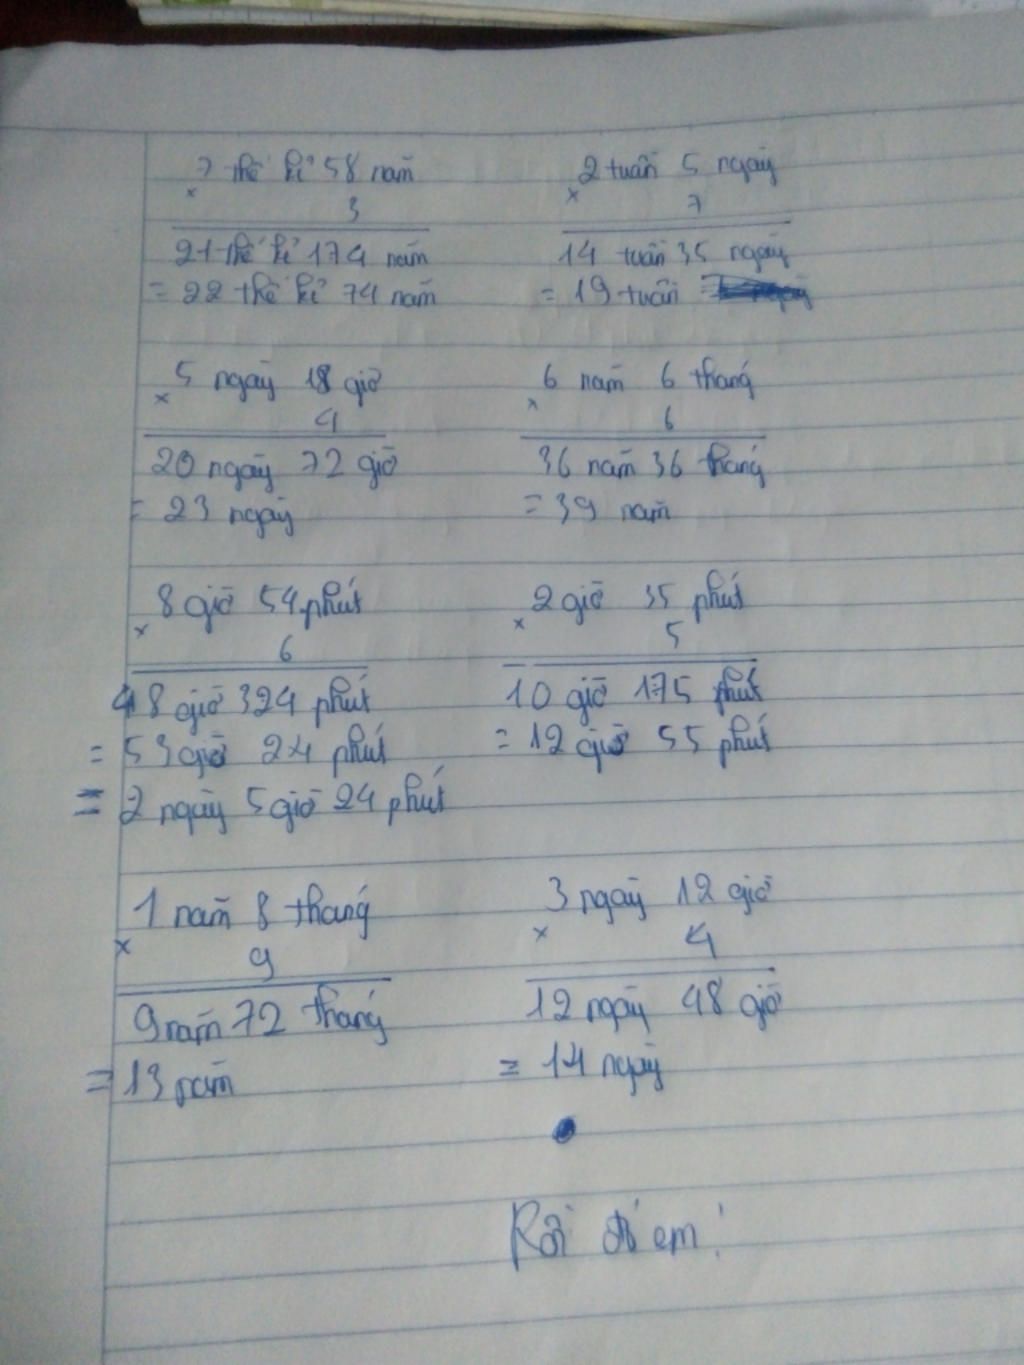 7 thế kỉ 58 năm
×
3
21 thế kỉ 174 năm
= 22 thế kỉ 74 năm
2 tuần 5 ngày
×
7
14 tuần 35 ngày
= 19 tuần
5 ngày 18 giờ
×
4
20 ngày 72 giờ
= 23 ngày
6 năm 6 tháng
×
6
36 năm 36 tháng
= 39 năm
8 giờ 54 phút
×
6
48 giờ 324 phút
= 53 giờ 24 phút
= 2 ngày 5 giờ 24 phút
2 giờ 35 phút
×
5
10 giờ 175 phút
= 12 giờ 55 phút
1 năm 8 tháng
×
9
9 năm 72 tháng
= 13 năm
3 ngày 12 giờ
×
4
12 ngày 48 giờ
= 14 ngày
Rồi đó em!